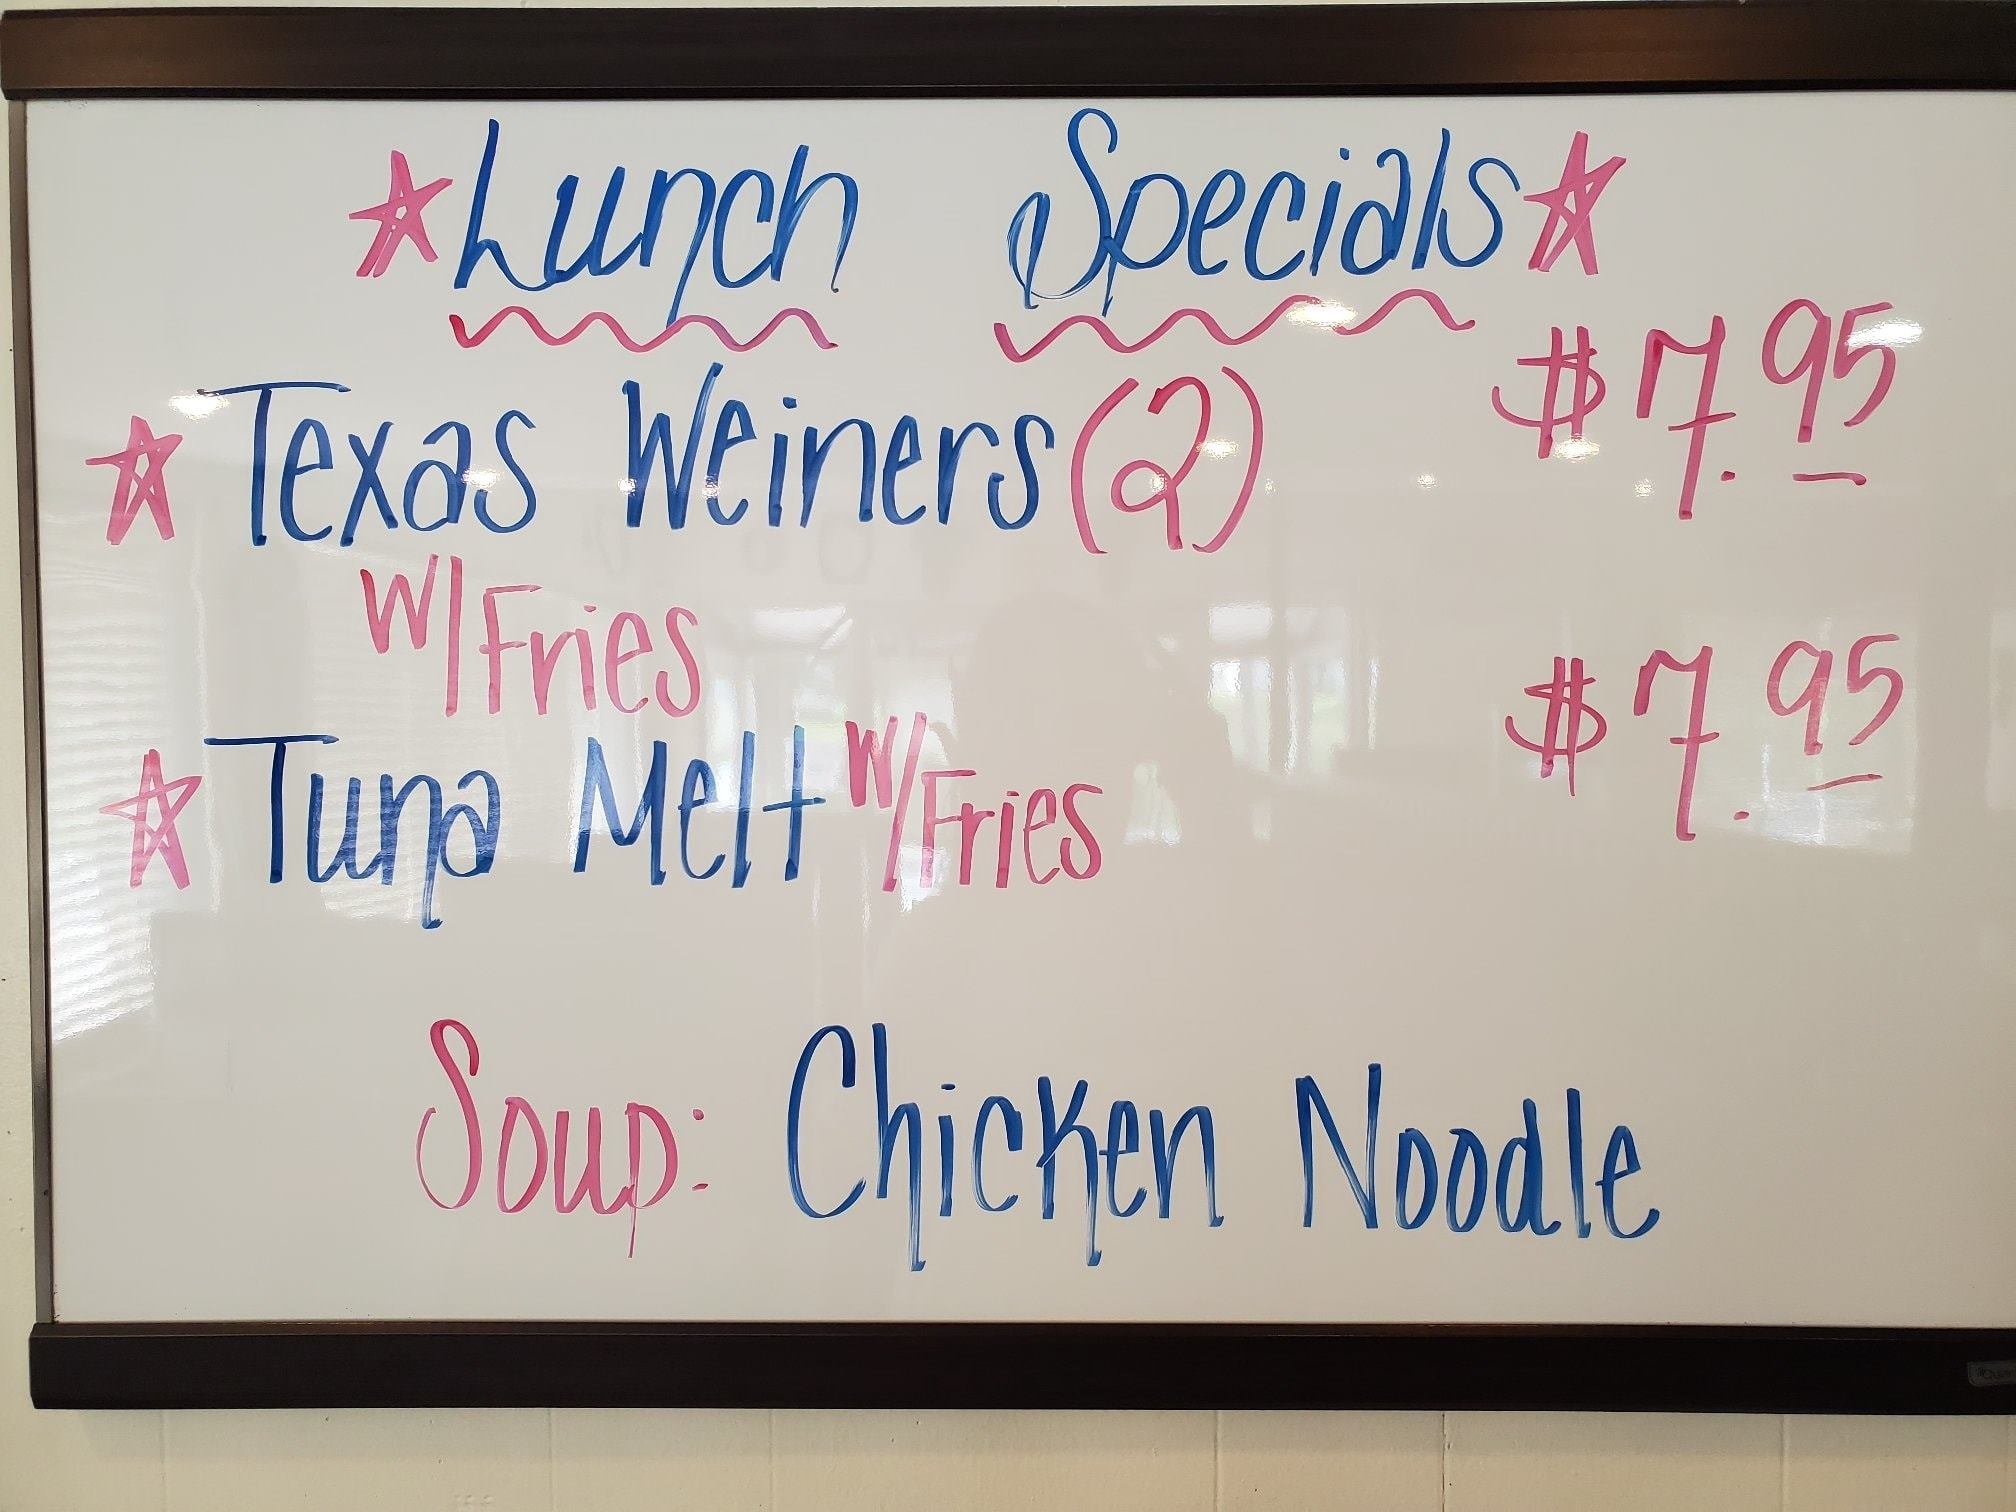 Lunch Specials
Texas Weiners (2) $7.95
W/Fries
Tuna Melt W/Fries $7.95
Soup: Chicken Noodle